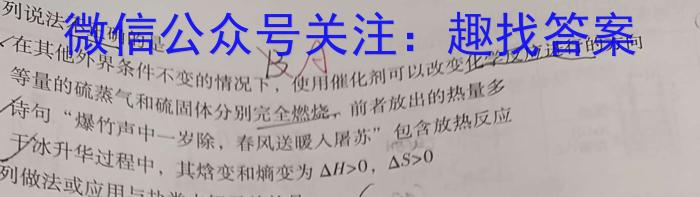 微信公众号关注：趣找答案
列说法
在其他外界条件不变的情况下，使用催化剂可以改变化学反应进行的方向
等量的硫蒸气和硫固体分别完全燃烧，前者放出的热量多
诗句“爆竹声中一岁除，春风送暖入屠苏”包含放热反应
干冰升华过程中，其焓变和熵变为 ΔH>0，ΔS>0
列做法或应用与